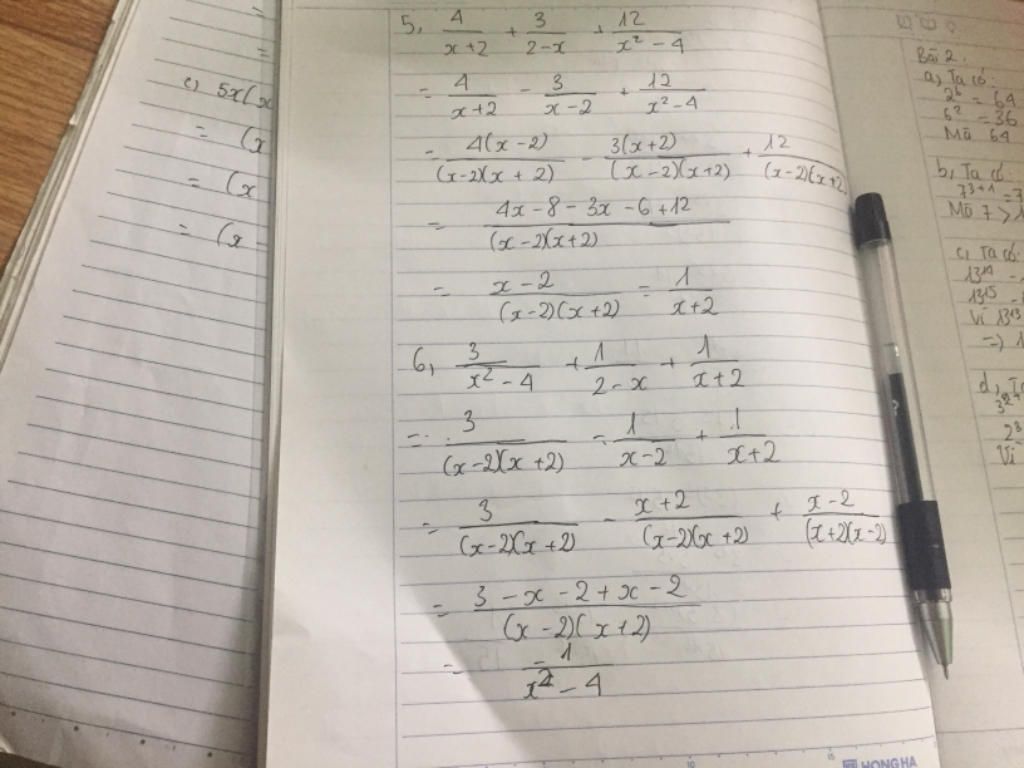 c) 5x(x
=
= (x
= (x
= (x
5, 4/(x+2) + 3/(2-x) + 12/(x²-4)
= 4/(x+2) - 3/(x-2) + 12/(x²-4)
= 4(x-2)/((x-2)(x+2)) - 3(x+2)/((x-2)(x+2)) + 12/((x-2)(x+2
= (4x-8-3x-6+12)/((x-2)(x+2))
= (x-2)/((x-2)(x+2)) = 1/(x+2)
6, 3/(x²-4) + 1/(2-x) + 1/(x+2)
= 3/((x-2)(x+2)) - 1/(x-2) + 1/(x+2)
= 3/((x-2)(x+2)) - (x+2)/((x-2)(x+2)) + (x-2)/((x+2)(x-2))
= (3-x-2+x-2)/((x-2)(x+2))
= -1/(x²-4)
Bài 2.
a, Ta có:
2⁶ = 64
6² = 36
Mà 64
b, Ta có:
7³⁺¹ = 7
Mà 7 > 1
c, Ta có:
=) 1
d, Ta
Vì
10
15
HONG HA